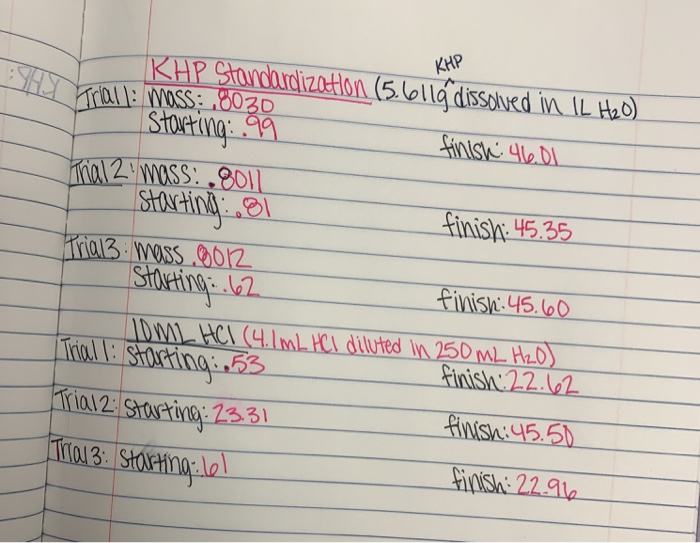 KHP Standardization (5.611g KHP dissolved in 1L H2O)
Trial 1: mass: .8030
Starting: .99 finish: 46.01
Trial 2: mass: .8011
starting: .81 finish: 45.35
Trial 3: mass .8012
starting: .62 finish: 45.60
10mL HCl (4.1mL HCl diluted in 250 mL H2O)
Trial 1: starting: .53 finish: 22.62
Trial 2: starting: 23.31 finish: 45.50
Trial 3: starting: .61 finish: 22.96